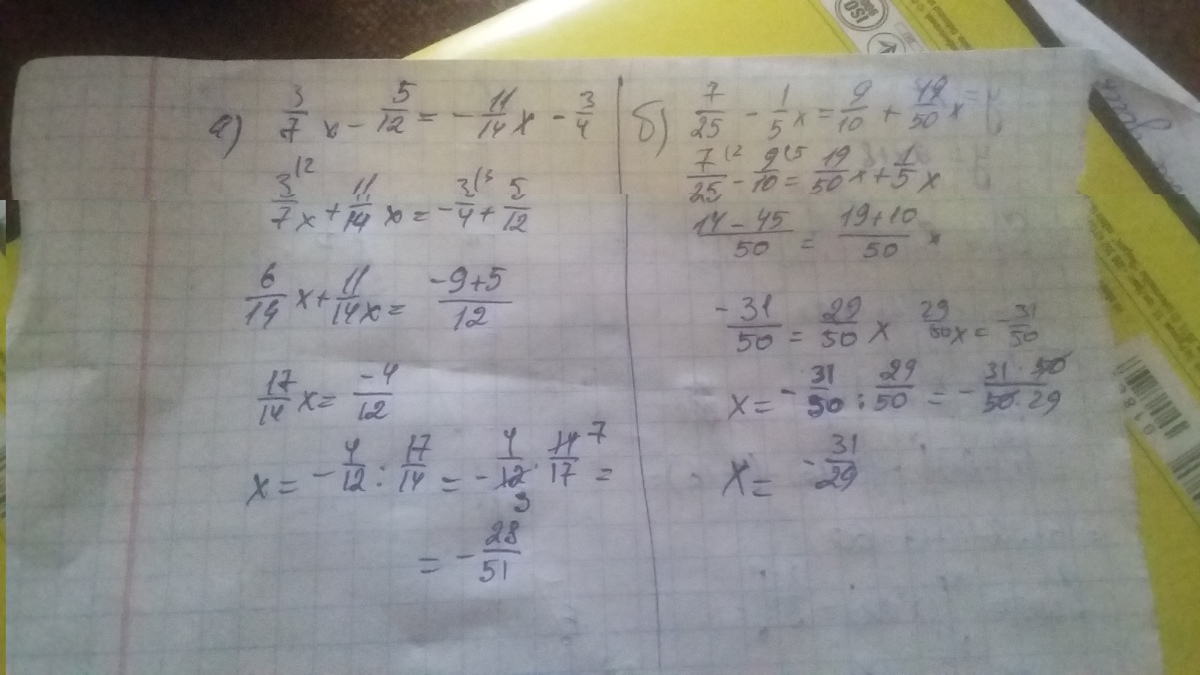 а) 3/7 x - 5/12 = - 11/14 x - 3/4
3/7 (2 x + 11/14 x = - 3/4 (3 + 5/12
6/14 x + 11/14 x = (-9+5)/12
17/14 x = -4/12
x = - 4/12 : 17/14 = - 4/12 · 14/17 =
3 7
= - 28/51
б) 7/25 - 1/5 x = 9/10 + 19/50 x
7/25 (2 - 9/10 (5 = 19/50 x + 1/5 x
(14-45)/50 = (19+10)/50 x
-31/50 = 29/50 x 29/50 x = -31/50
x = - 31/50 : 29/50 = - (31 · 50)/(50 · 29)
x = - 31/29
ISO